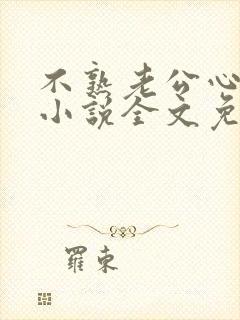 不熟老公心
小說全文免
羅東